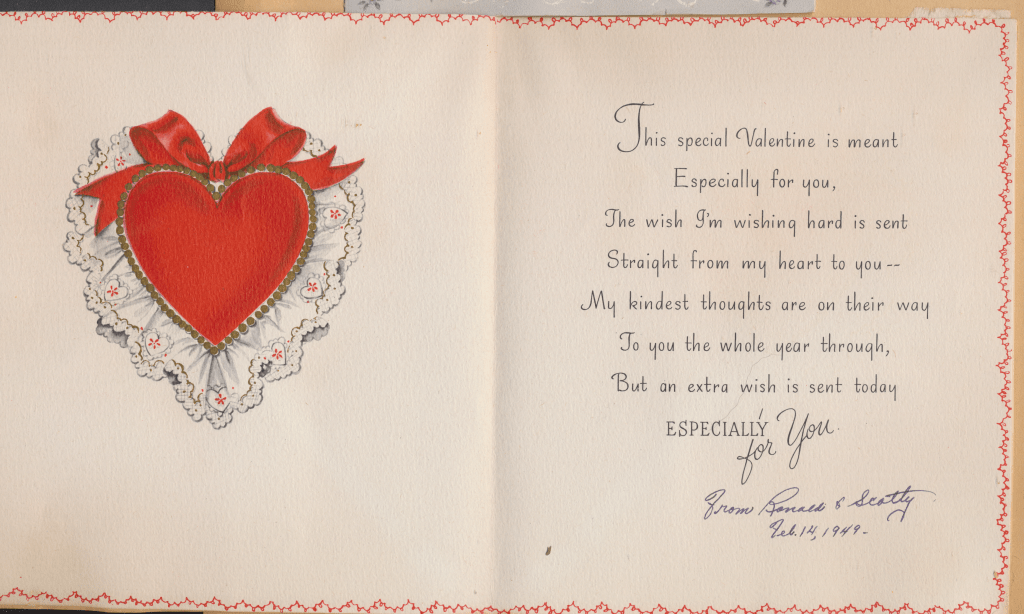 This special Valentine is meant
Especially for you,
The wish I'm wishing hard is sent
Straight from my heart to you--
My kindest thoughts are on their way
To you the whole year through,
But an extra wish is sent today
ESPECIALLY
for You
From Ronald & Scotty
Feb. 14, 1949-